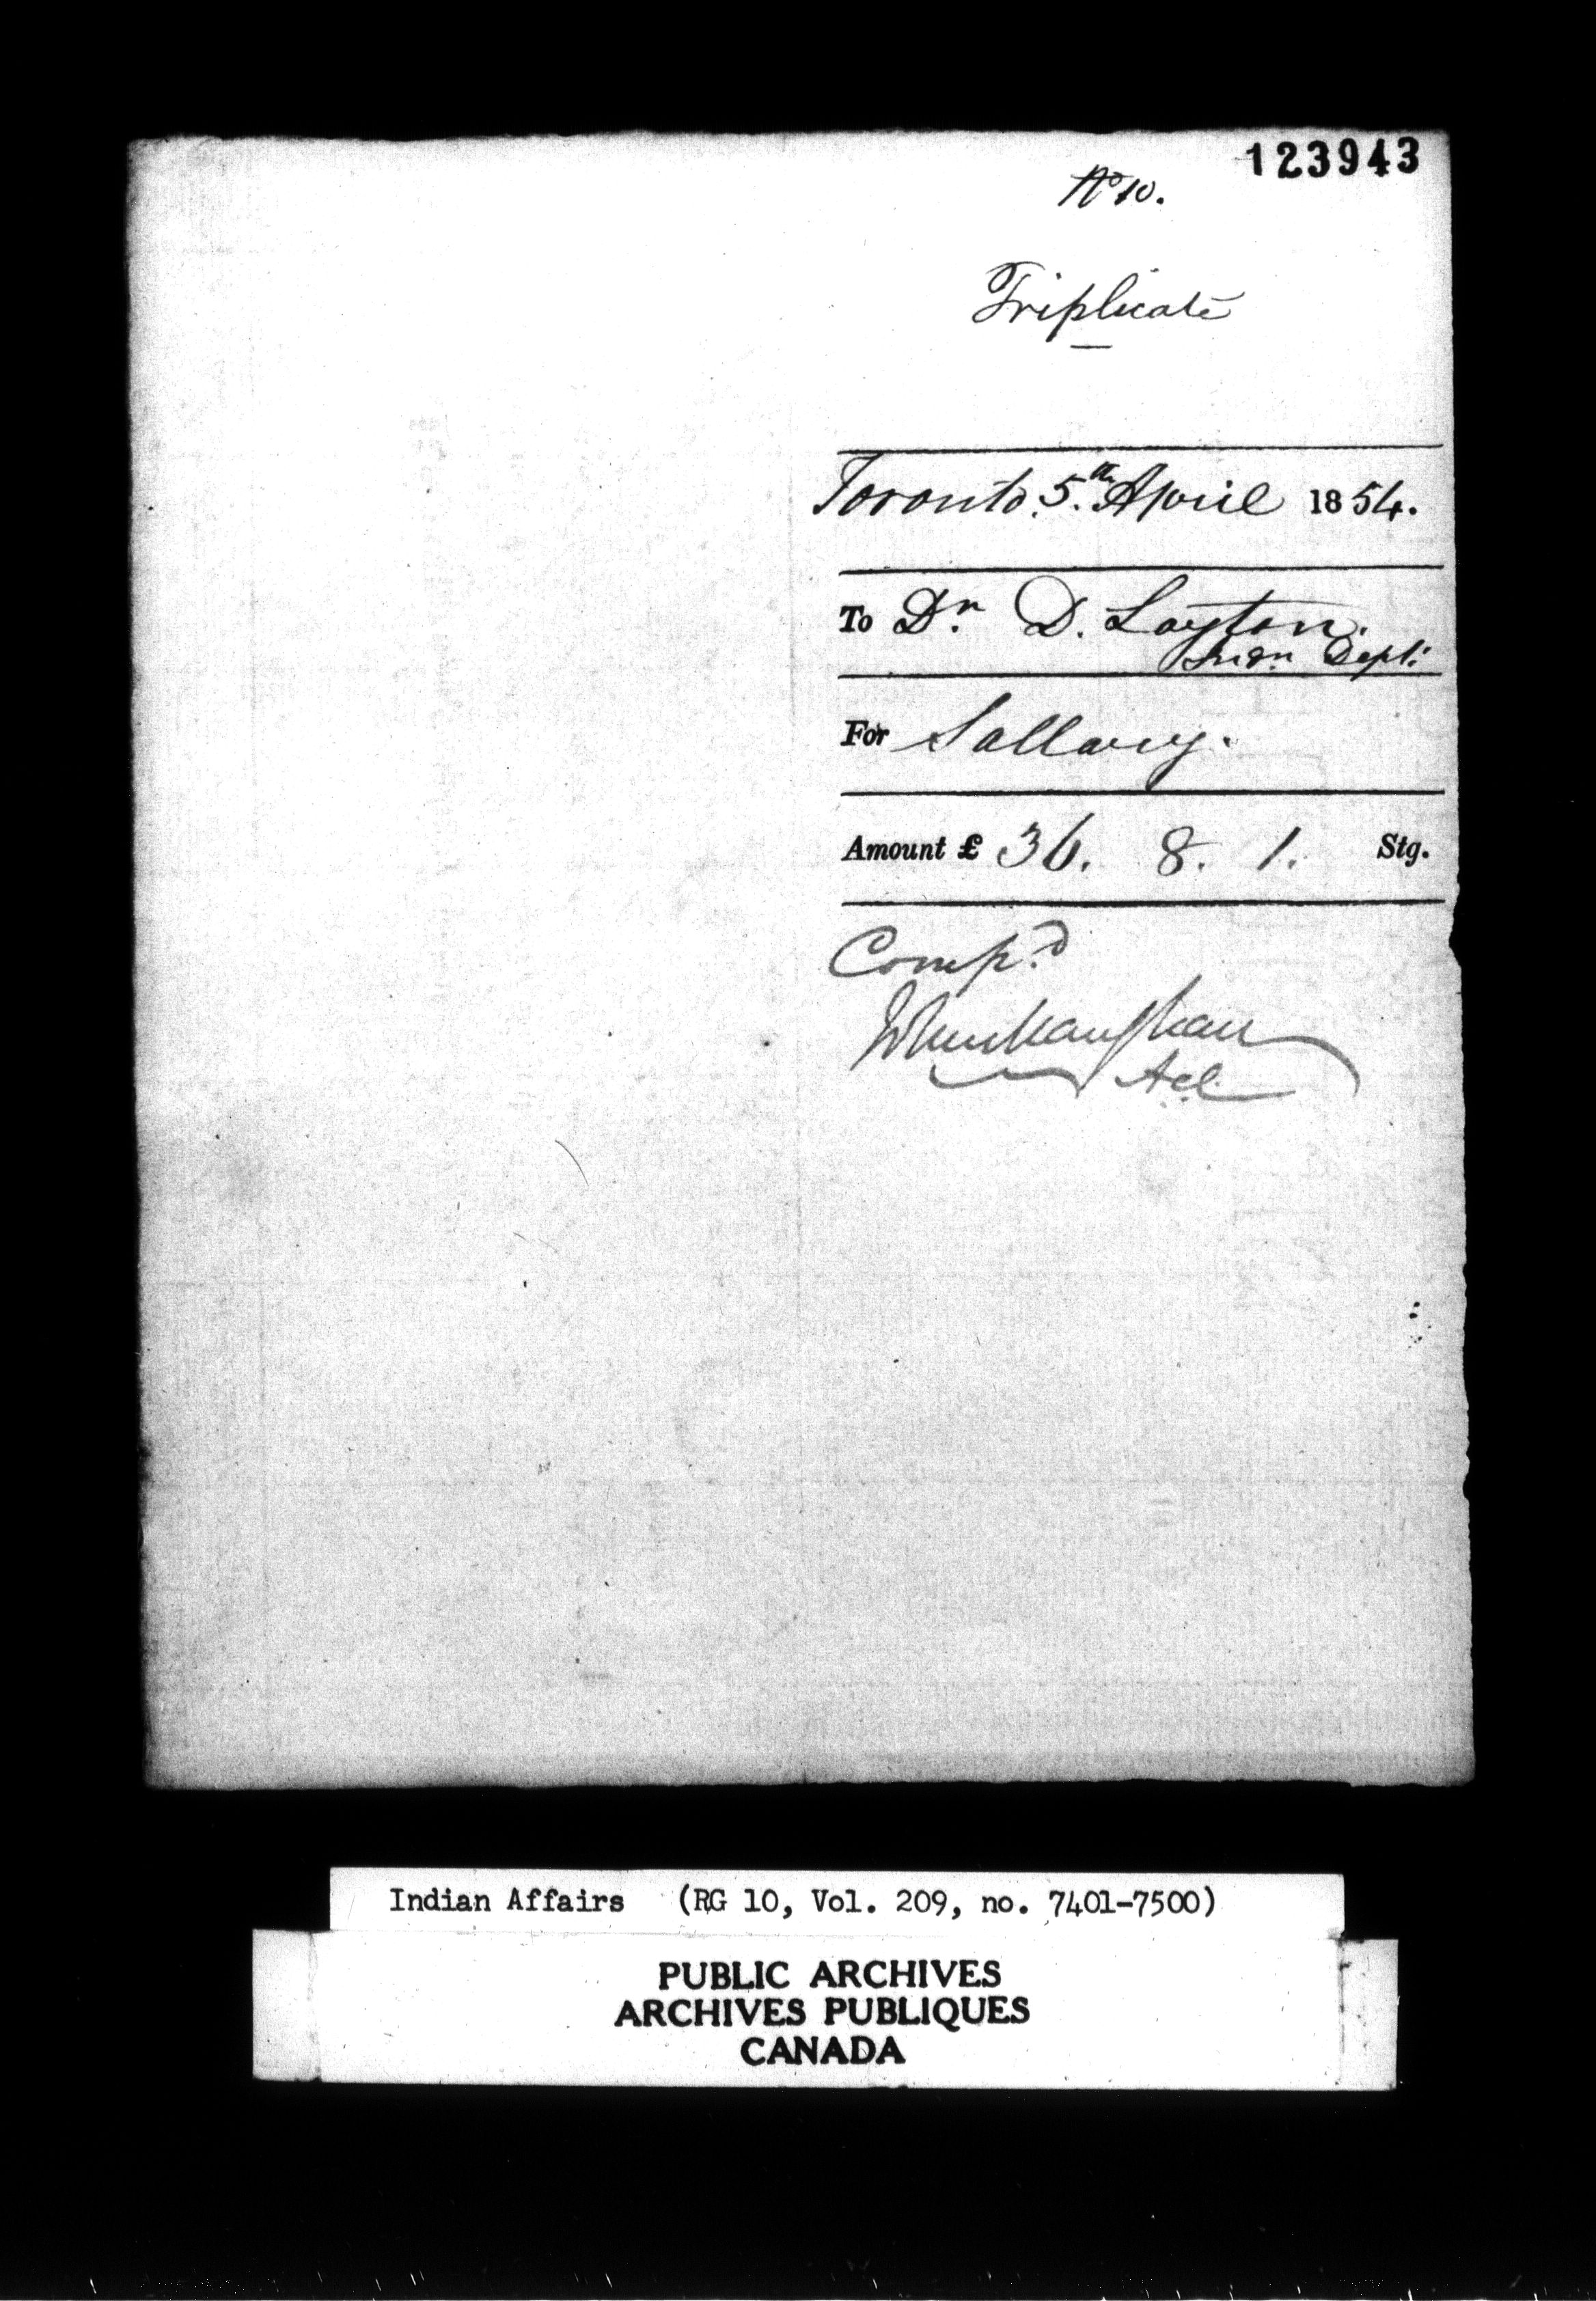 123943
No 10.
Triplicate
Toronto. 5.th April 1854.
To Dr. D. Layton.
Indn. Dept.
For Sallary.
Amount £ 36. 8. 1. Stg.
Comp.d
Indian Affairs (RG 10, Vol. 209, no. 7401-7500)
PUBLIC ARCHIVES
ARCHIVES PUBLIQUES
CANADA